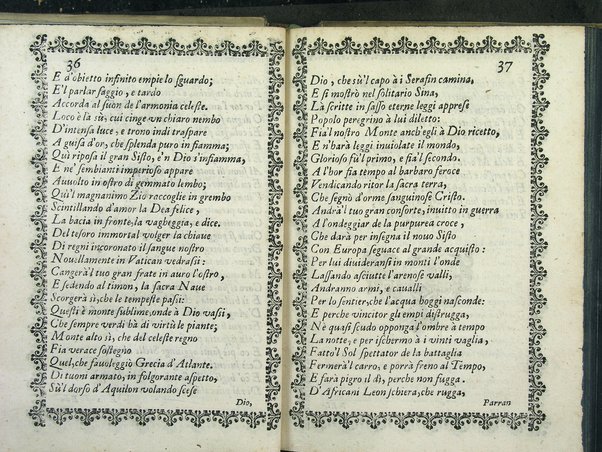 36
E d'obietto infinito empie lo sguardo;
E'l parlar saggio, e tardo
Accorda al suon de l'armonia celeste.
Loco è la sù, cui cinge vn chiaro nembo
D'intensa luce, e trono indi traspare
A guisa d'or, che splenda puro in fiamma;
Quì riposa il gran Sisto, e'n Dio s'infiamma,
E ne' sembianti imperioso appare
Auuolto in ostro di gemmato lembo;
Quì l magnanimo Zio raccoglie in grembo
Scintillando d'amor la Dea felice,
La bacia in fronte, la vagheggia, e dice.
Del tesoro immortal volger la chiaue
Di regni incoronato il sangue nostro
Nouellamente in Vatican vedrassi:
Cangerà l tuo gran frate in auro l'ostro,
E sedendo al timon, la sacra Naue
Scorgerà sì, che le tempeste passi:
Questi è monte sublime, onde à Dio vassi,
Che sempre verdi hà di virtù le piante;
Monte alto sì, che del celeste regno
Fia verace sostegno
Quel, che fauoleggiò Grecia d'Atlante.
Di tuoni armato, in folgorante aspetto,
Sù'l dorso d'Aquilon volando scese
Dio,
37
Dio, che sù'l capo à i Serafin camina,
E si mostrò nel solitario Sina,
Là scritte in sasso eterne leggi apprese
Popolo peregrino à lui diletto:
Fia'l nostro Monte anch'egli à Dio ricetto,
E n'harà leggi inuiolate il mondo,
Glorioso fù'l primo, e fia'l secondo.
A l'hor fia tempo al barbaro feroce
Vendicando ritor la sacra terra,
Che segnò d'orme sanguinose Cristo.
Andrà'l tuo gran conforte, inuitto in guerra
A l'ondeggiar de la purpurea croce,
Che darà per insegna il nouo Sisto
Con Europa seguace al grande acquisto:
Per lui diuideransi in monti l'onde
Lassando asciutte l'arenose valli,
Andranno armi, e caualli
Per lo sentier, che l'acqua hoggi nasconde:
E perche vincitor gli empi distrugga,
Nè quasi scudo opponga l'ombre à tempo
La notte, e per ischermo à i vinti vaglia,
Fatto'l Sol spettator de la battaglia
Fermerà'l carro, e porrà freno al Tempo,
E sarà pigro il dì, perche non fugga.
D'Africani Leon schiera, che rugga,
Parran